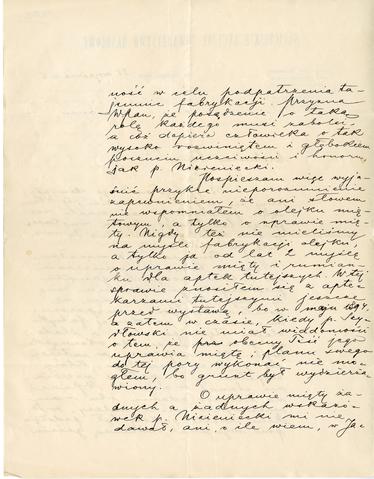 ność w celu podpatrzenia ta-
jemnic fabrykacji. Przyzna
WPan, że posądzenie o taką
rolę każdego musi zaboleć
a cóż dopiero człowieka o tak
wysoko rozwiniętem i głębokiem
poczuciu uczciwości i honoru,
jak p. Nieśniecki.
Pospieszam więc wyja-
śnić przykre nieporozumienie
zapewnieniem, że ani słowem
nie wspomniałem o olejku mię-
towym, a tylko o uprawie mię-
ty. Nigdy też nie mieliśmy
na myśli fabrykacji olejku,
a tylko ja od lat 2 myślę
o uprawie mięty i rumian-
ku dla aptek tutejszych. W tej
sprawie znosiłem się z apte-
karzami tutejszymi jeszcze
przed wystawą, bo w maju 1894
a zatem w czasie, kiedy p.
nie miał wiadomości
o tem, że obecny Teść jego
uprawia miętę; planu swego
do tej pory wykonać nie mo-
głem, bo grunt był wydzierża-
wiony.
O uprawie mięty ża-
dnych a żadnych wskazó-
wek p. Nieśniecki mi nie
dawał, ani, o ile wiem, w Ja-